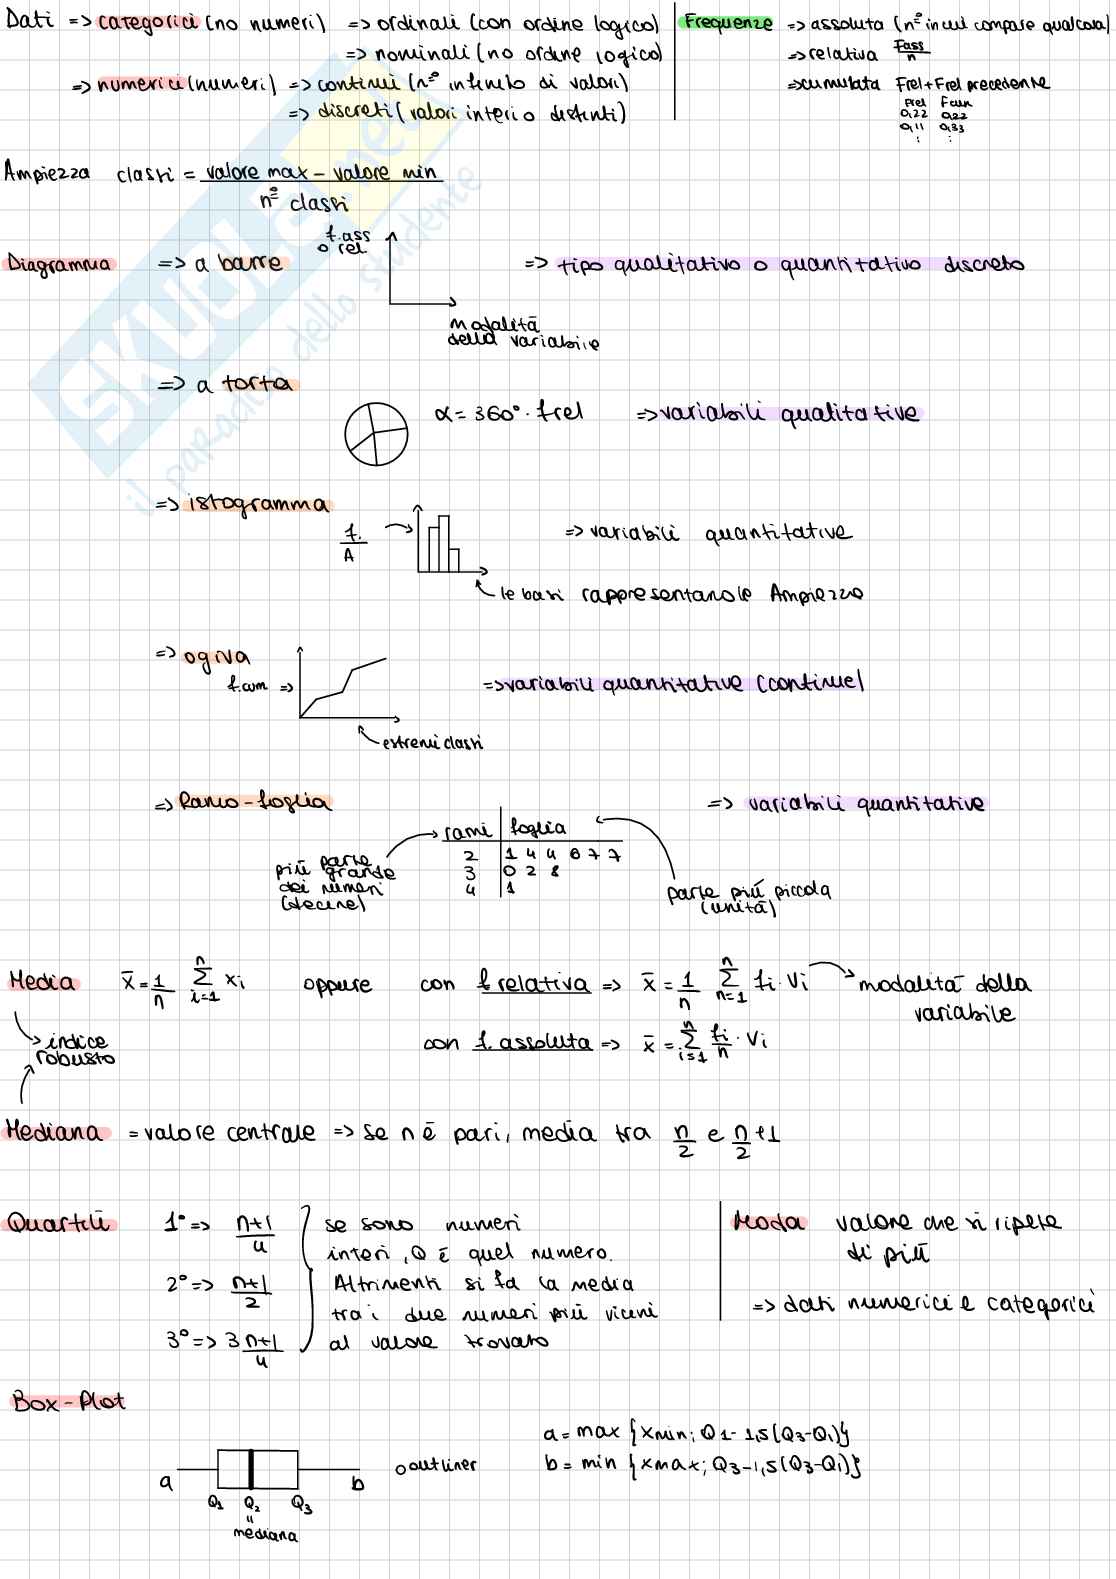 Dati => categorici (no numeri) => ordinali (con ordine logico)
=> nominali (no ordine logico)
=> numerici (numeri) => continui (n° infinito di valori)
=> discreti (valori interi o distinti)
Frequenze => assoluta (n° in cui compare qualcosa)
=> relativa Fass/n
=> cumulata Frel + Frel precedente
Frel Fcum
0,22 0,22
0,11 0,33
: :
Ampiezza classi = valore max - valore min / n° classi
Diagramma => a barre
f. ass o rel
modalità della variabile
=> tipo qualitativo o quantitativo discreto
=> a torta
α = 360° · frel => variabili qualitative
=> istogramma
f. / A
=> variabili quantitative
le basi rappresentano le Ampiezze
=> ogiva
f. cum =>
=> variabili quantitative (continue)
estremi classi
=> Ramo-foglia => variabili quantitative
rami | foglia
2 | 1 4 4 6 7 7
3 | 0 2 8
4 | 1
più parte grande dei numeri (decine)
parte più piccola (unità)
Media x̄ = 1/n Σ i=1 n xi oppure con f relativa => x̄ = 1/n Σ n=1 n fi · Vi modalità della variabile
indice robusto
con f. assoluta => x̄ = Σ i=1 n fi/n · Vi
Mediana = valore centrale => se n è pari, media tra n/2 e n/2 +1
Quartili 1° => n+1/4
2° => n+1/2
3° => 3 n+1/4
se sono numeri
interi, Q è quel numero.
Altrimenti si fa la media
tra i due numeri più vicini
al valore trovato
Moda valore che si ripete
di più
=> dati numerici e categorici
Box-Plot
a Q1 Q2 Q3 b
" mediana
o outliner
a = max {xmin; Q1 - 1,5(Q3-Q1)}
b = min {xmax; Q3 - 1,5(Q3-Q1)}
SKUOLA.net
il paradiso dello studente